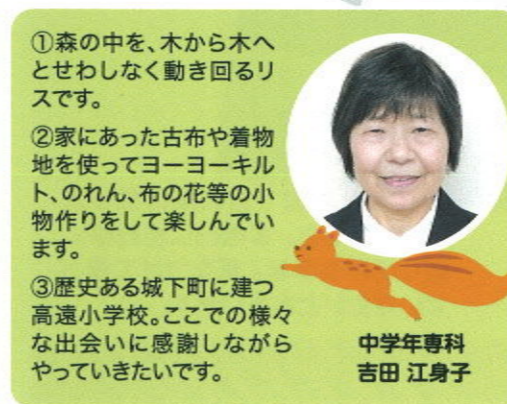 ①森の中を、木から木へ
とせわしなく動き回るリ
スです。
②家にあった古布や着物
地を使ってヨーヨーキル
ト、のれん、布の花等の小
物作りをして楽しんでい
ます。
③歴史ある城下町に建つ
高遠小学校。ここでの様々
な出会いに感謝しながら
やっていきたいです。
中学年専科
吉田 江身子